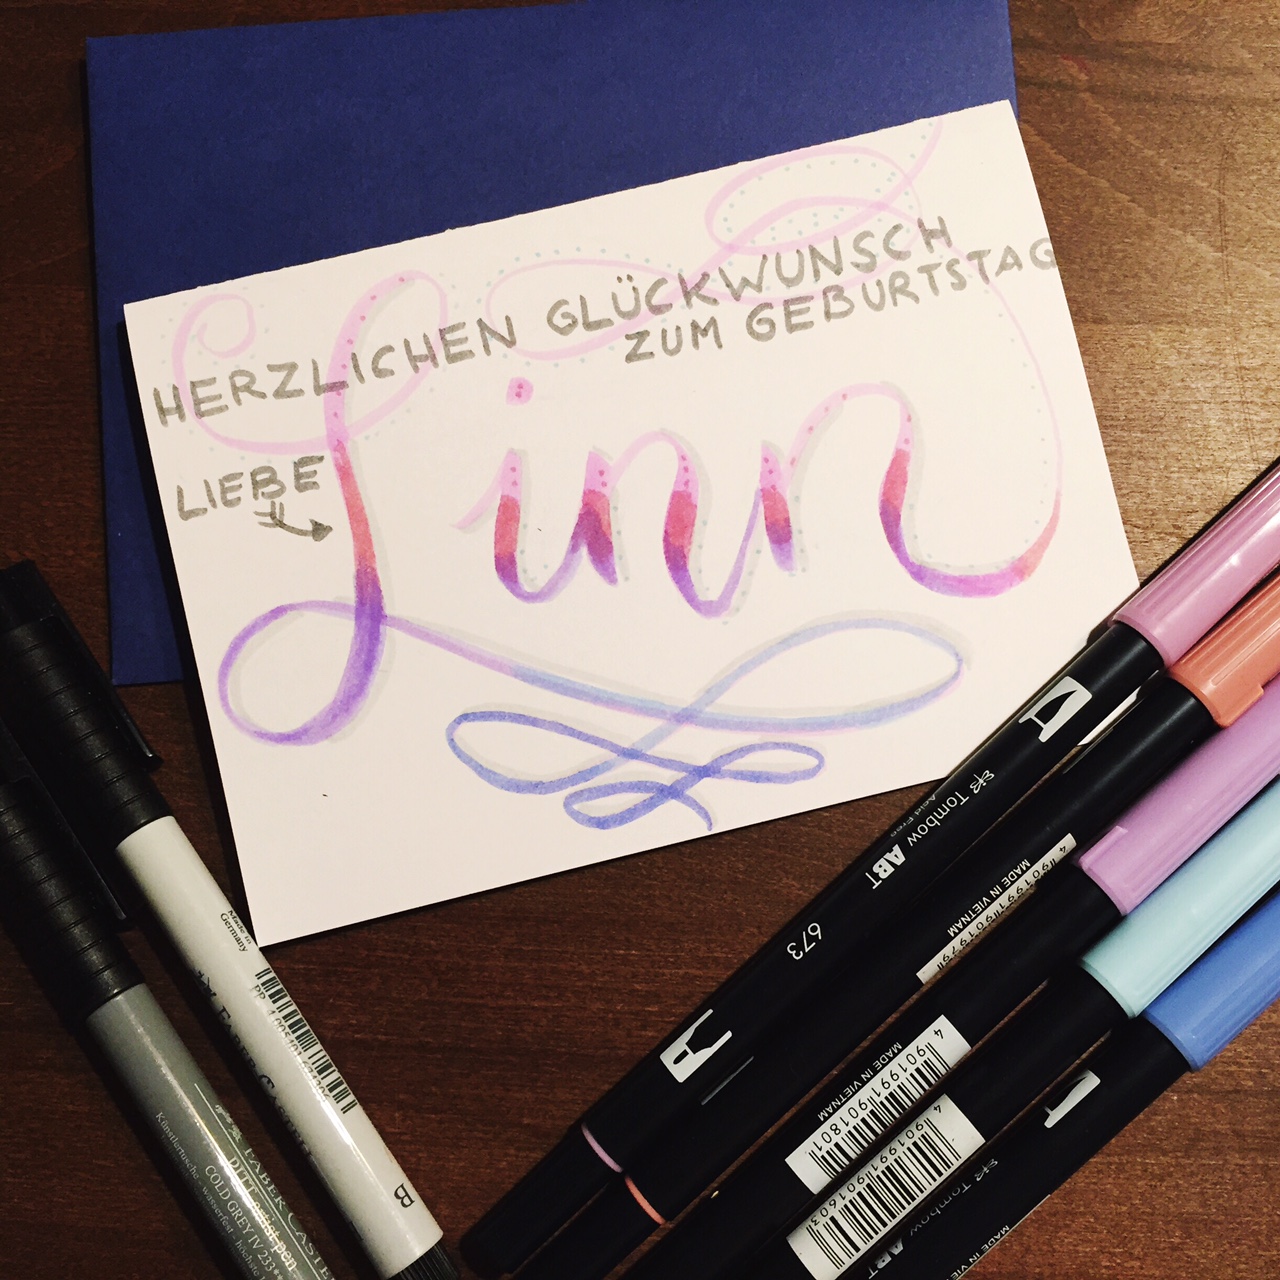 HERZLICHEN GLÜCKWUNSCH
ZUM GEBURTSTAG
LIEBE
Linn
Tombow ABT
Acid Free
673
MADE IN VIETNAM
4 901991 901979
MADE IN VIETNAM
4 901991 901801
4 901991 901603
Tombow ABT
MADE IN VIETNAM
Made in
Germany
FABER-CASTELL
B
FABER-CASTELL
PITT artist pen
Künstlertusche - wasserfest
COLD GREY IV 233